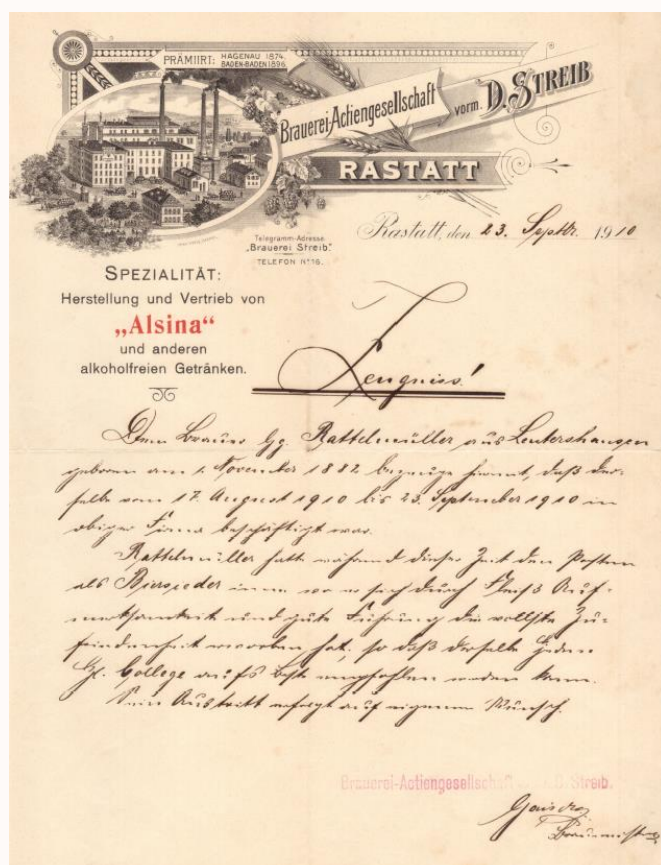 PRÄMIIRT: HAGENAU 1874.
BADEN-BADEN 1896.
Brauerei-Actiengesellschaft vorm. D. STREIB
RASTATT
Telegramm-Adresse
„Brauerei Streib.”
TELEFON No 16.
Rastatt, den 23. Septbr. 1910
SPEZIALITÄT:
Herstellung und Vertrieb von
„Alsina“
und anderen
alkoholfreien Getränken.
Zeugniss!
Dem Brauer Gg. Rattelmüller aus Leutershausen
geboren am 1. November 1882 bezeuge hiemit, daß der-
selbe vom 17. August 1910 bis 23. September 1910 in
obiger Firma beschäftigt war.
Rattelmüller hatte während dieser Zeit den Posten
als Biersieder inne wo er sich durch Fleiß Auf-
merksamkeit und gute Führung die vollste Zu-
friedenheit erworben hat, so daß derselbe jedem
H. College aufs beste empfohlen werden kann.
Sein Austritt erfolgt auf eigenen Wunsch.
Brauerei-Actiengesellschaft D. Streib.
Braumeister